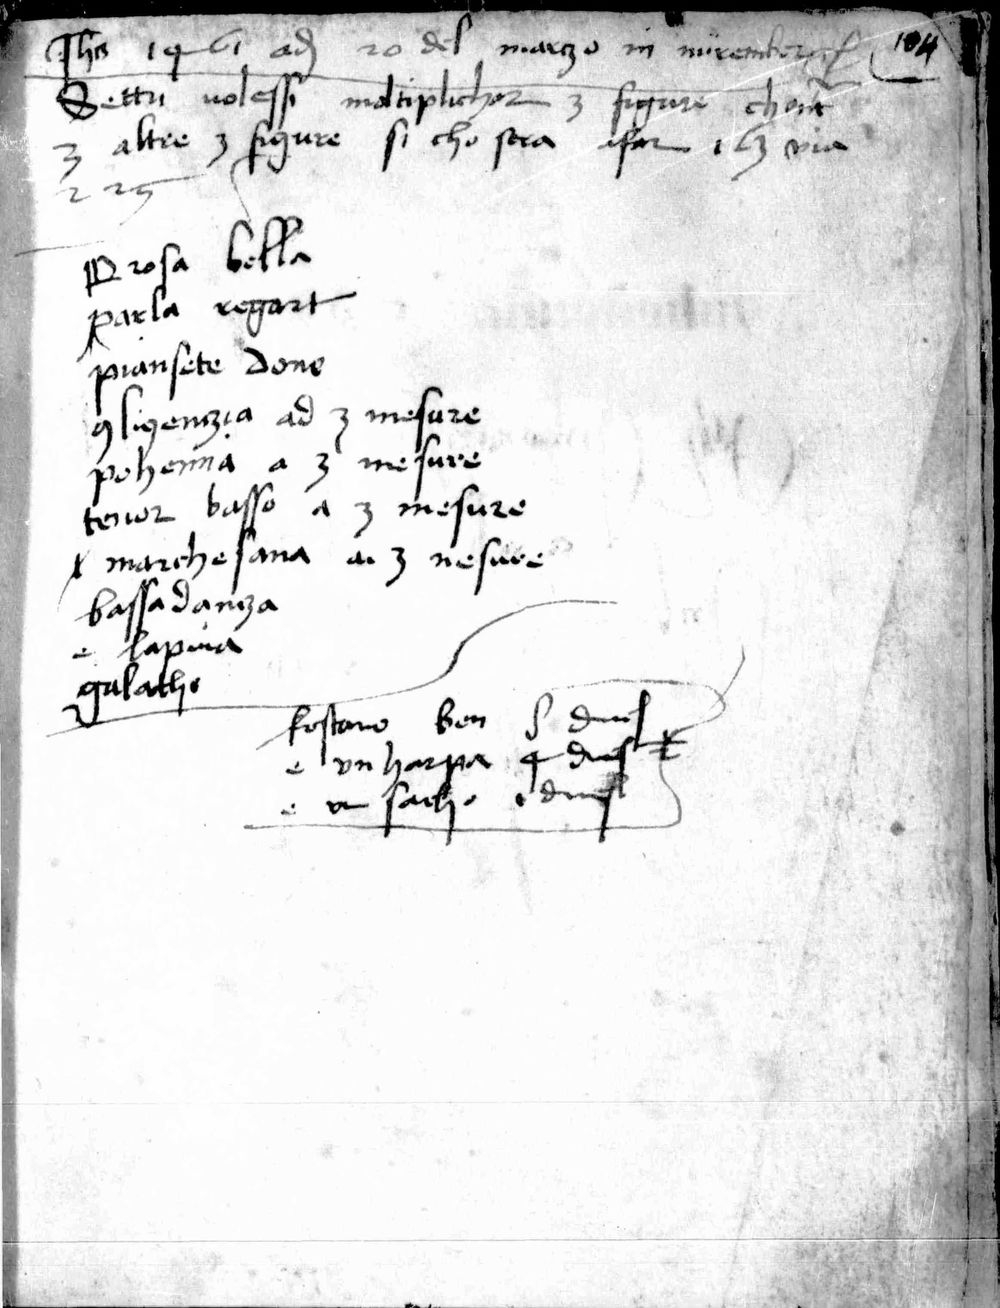 Jhs 1461 adj 20 del marzo in nürembergh 104
Settu volessi moltiplichar 3 figure chont
3 altre 3 figure si cho stra afar 163 via
225
O rosa bella
parla regart
piansete done
qligenzia ad 3 mesure
pohemia a 3 mesure
tenor basso a 3 mesure
marchesana ai 3 mesure
bassadanza
e lapiua
gulatho
ben
e vn harpa 4
e vn